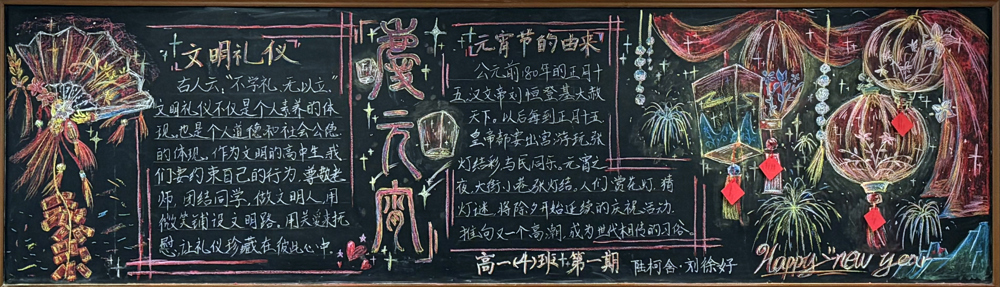 文明礼仪
古人云，“不学礼，无以立”
文明礼仪不仅是个人素养的体
现，也是个人道德和社会公德
的体现。作为文明的高中生，我
们要约束自己的行为，尊敬老
师，团结同学，做文明人，用
微笑铺设文明路，用关爱来抚
慰，让礼仪珍藏在彼此心中
慶元宵
元宵节的由来
公元前180年的正月十
五，汉文帝刘恒登基大赦
天下。以后每到正月十五
皇帝都要出宫游玩，张
灯结彩与民同乐。元宵之
夜，大街小巷张灯结，人们赏花灯，猜
灯谜，将除夕开始连续的庆祝活动
推向又一个高潮，成为世代相传的习俗。
高一(4)班 第一期 陈柯含·刘徐好
Happy new year